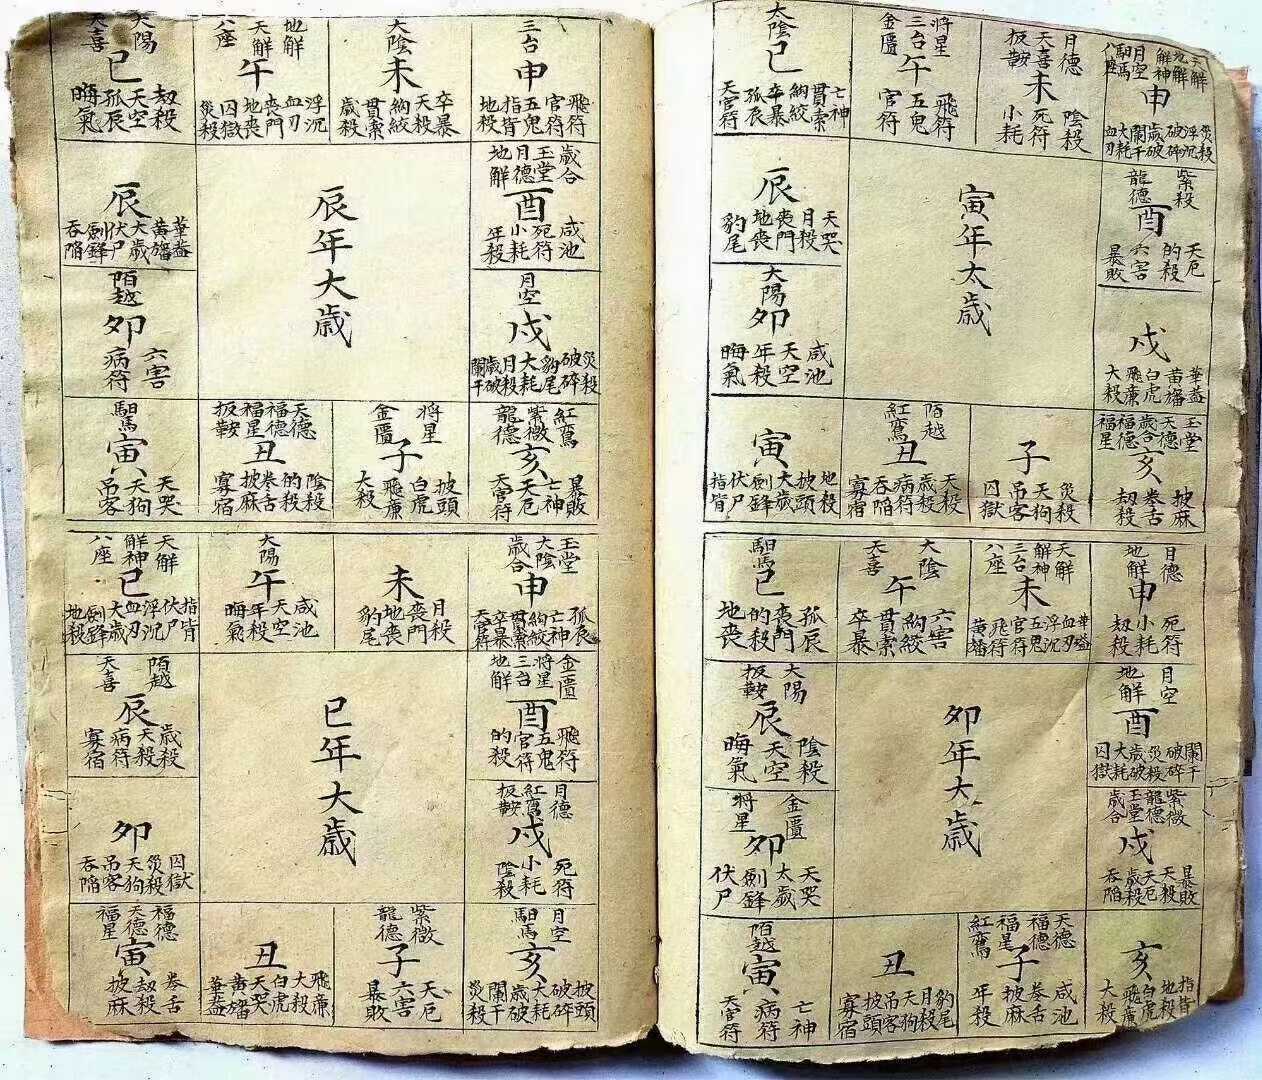 寅年太歲
太陰
巳
亡神 貫索 絢絞 卒暴 孤辰 天官符
將星 三台 金匱
午
飛符 五鬼 官符
月德 天喜 扳鞍
未
陰殺 死符 小耗
天解 地解 解神 月空 馹馬 八座
申
災殺 浮沉 破碎 歲破 闌干 大耗 血刃
紫殺 龍德
酉
天厄 的殺 六害 暴敗
戌
華蓋 黃旛 白虎 飛廉 大殺
玉堂 天德 歲合 福德 福星
亥
披麻 卷舌 劫殺
子
災殺 天狗 吊客 囚獄
陌越 紅鸞
丑
天殺 歲殺 病符 吞陷 寡宿
寅
地殺 披頭 大歲 劍鋒 伏尸 指背
太陽
卯
咸池 天空 年殺 晦氣
辰
天哭 月殺 喪門 地喪 豹尾
卯年大歲
馹馬
巳
孤辰 喪門 的殺 地喪
大陰 天喜
午
六害 絢絞 貫索 卒暴
天解 解神 三台 八座
未
華蓋 血刃 浮沉 五鬼 官符 飛符 黃旛
月德 地解
申
死符 小耗 劫殺
月空 地解
酉
闌干 破碎 災殺 歲破 大耗 囚獄
紫微 龍德 玉堂 歲合
戌
暴敗 天殺 天厄 歲殺 吞陷
亥
指背 地殺 白虎 飛廉 大殺
天德 福德 福星 紅鸞
子
咸池 卷舌 披麻 年殺
丑
豹尾 月殺 天狗 吊客 披頭 寡宿
陌越
寅
亡神 病符 天官符
金匱 將星
卯
天哭 太歲 劍鋒 伏尸
大陽 扳鞍
辰
陰殺 天空 晦氣
辰年大歲
大陽 天喜
巳
劫殺 天空 孤辰 晦氣
地解 天解 八座
午
浮沉 血刃 喪門 地喪 囚獄 災殺
大陰
未
卒暴 天殺 絢絞 貫索 歲殺
三台
申
飛符 官符 五鬼 指背 地殺
歲合 玉堂 月德 地解
酉
咸池 死符 小耗 年殺
月空
戌
災殺 破碎 豹尾 大耗 月殺 歲破 闌干
紅鸞 紫微 龍德
亥
暴敗 亡神 天厄 天官符
將星 金匱
子
披頭 白虎 飛廉 大殺
天德 福德 福星 扳鞍
丑
陰殺 的殺 卷舌 披麻 寡宿
馹馬
寅
天哭 天狗 吊客
陌越
卯
六害 病符
辰
華蓋 黃旛 大歲 伏尸 劍鋒 吞陷
巳年大歲
天解 解神 八座
巳
指背 伏尸 浮沉 血刃 大歲 劍鋒 地殺
大陽
午
咸池 天空 年殺 晦氣
未
月殺 喪門 地喪 豹尾
玉堂 大陰 歲合
申
孤辰 亡神 絢絞 貫索 卒暴 天官符
金匱 將星 三台 地解
酉
飛符 五鬼 官符 的殺
月德 紅鸞 扳鞍
戌
死符 小耗 陰殺
月空 馹馬
亥
披頭 破碎 大耗 歲破 闌干 災殺
紫微 龍德
子
天厄 六害 暴敗
丑
飛廉 大殺 白虎 天哭 黃旛 華蓋
福德 天德 福星
寅
卷舌 劫殺 披麻
卯
囚獄 災殺 天狗 吊客 吞陷
陌越 天喜
辰
歲殺 天殺 病符 寡宿